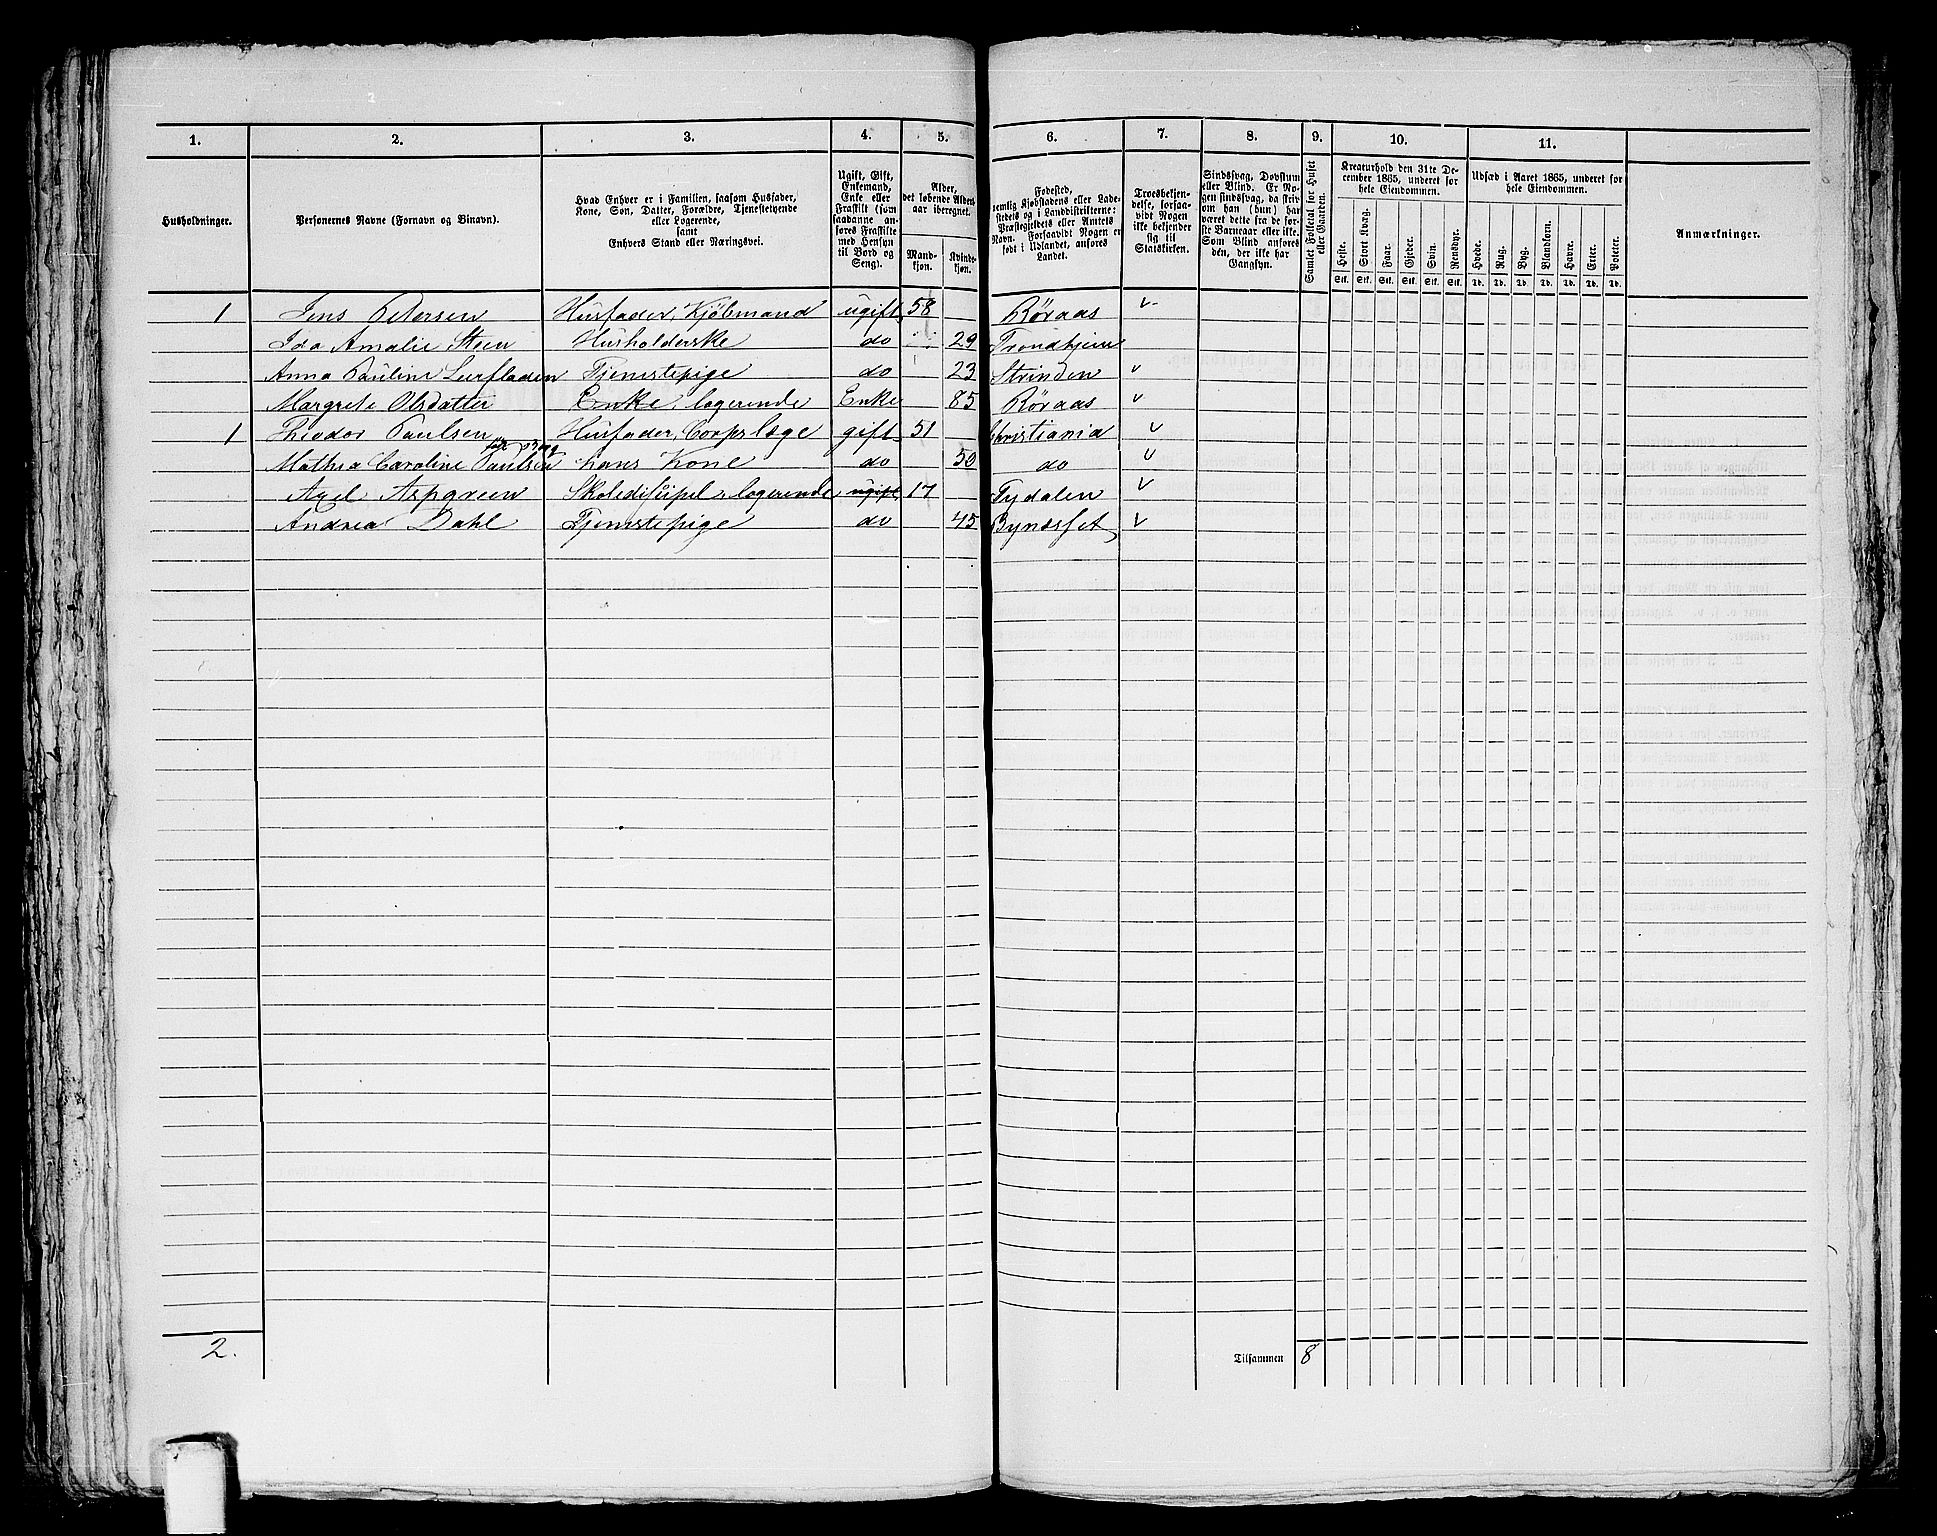 1. 2. 3. 4. 5. 6. 7. 8. 9. 10. 11.
Husholdninger.
Personernes Navne (Fornavn og Binavn).
Hvad Enhver er i Familien, saasom Husfader,
Kone, Søn, Datter, Forældre, Tjenestetyende
eller Logerende,
samt
Enhvers Stand eller Næringsvei.
Ugift, Gift,
Enkemand,
Enke eller
Fraskilt (som
saadanne an-
føres Fraskilte
med Hensyn
til Bord og
Seng).
Alder,
det løbende Alders-
aar iberegnet.
Mand-
kjøn.
Kvinde-
kjøn.
Fødested,
nemlig Kjøbstadens eller Lade-
stedets og i Landdistrikterne:
Præstegjeldets eller Amtets
Navn. Forsaavidt Nogen er
født i Udlandet, anføres
Landet.
Troesbekjen-
delse, forsaa-
vidt Nogen
ikke bekjender
sig til
Statskirken.
Sindssvag, Døvstum
eller Blind. Er No-
gen sindssvag, da skriv
om han (hun) har
været dette fra de før-
ste Barneaar eller ikke.
Som Blind anføres
den, der ikke har
Gangsyn.
Samlet Folketal for Huset
eller Gaarden.
Kreaturhold den 31te De-
cember 1865, underet for
hele Eiendommen.
Heste. Stort Kvæg. Faar. Gjeder. Svin. Rensdyr.
Stk. Stk. Stk. Stk. Stk. Stk.
Udsæd i Aaret 1865, underet for
hele Eiendommen.
Hvede. Rug. Byg. Blandkorn. Havre. Erter. Poteter.
Td. Td. Td. Td. Td. Td. Td.
Anmærkninger.
1 Jens Petersen Husfader, Kjöbmand ugift 58 Röraas
Ida Amalie Steen Husholderske do 29 Trondhjem
Anna Pauline Leerfladen Tjenestepige do 23 Strinden
Margrete Olsdatter Enke, logerende Enke 85 Röraas
1 Theodor Paulsen Husfader, Corpslæge gift 51 Christiania
Mathea Caroline Paulsen hans Kone do 50 do
Axel Aspgreen Skoledisipel, logerende ugift 17 Tydalen
Andrea Dahl Tjenestepige do 45 Bynæsset
2. Tilsammen 8